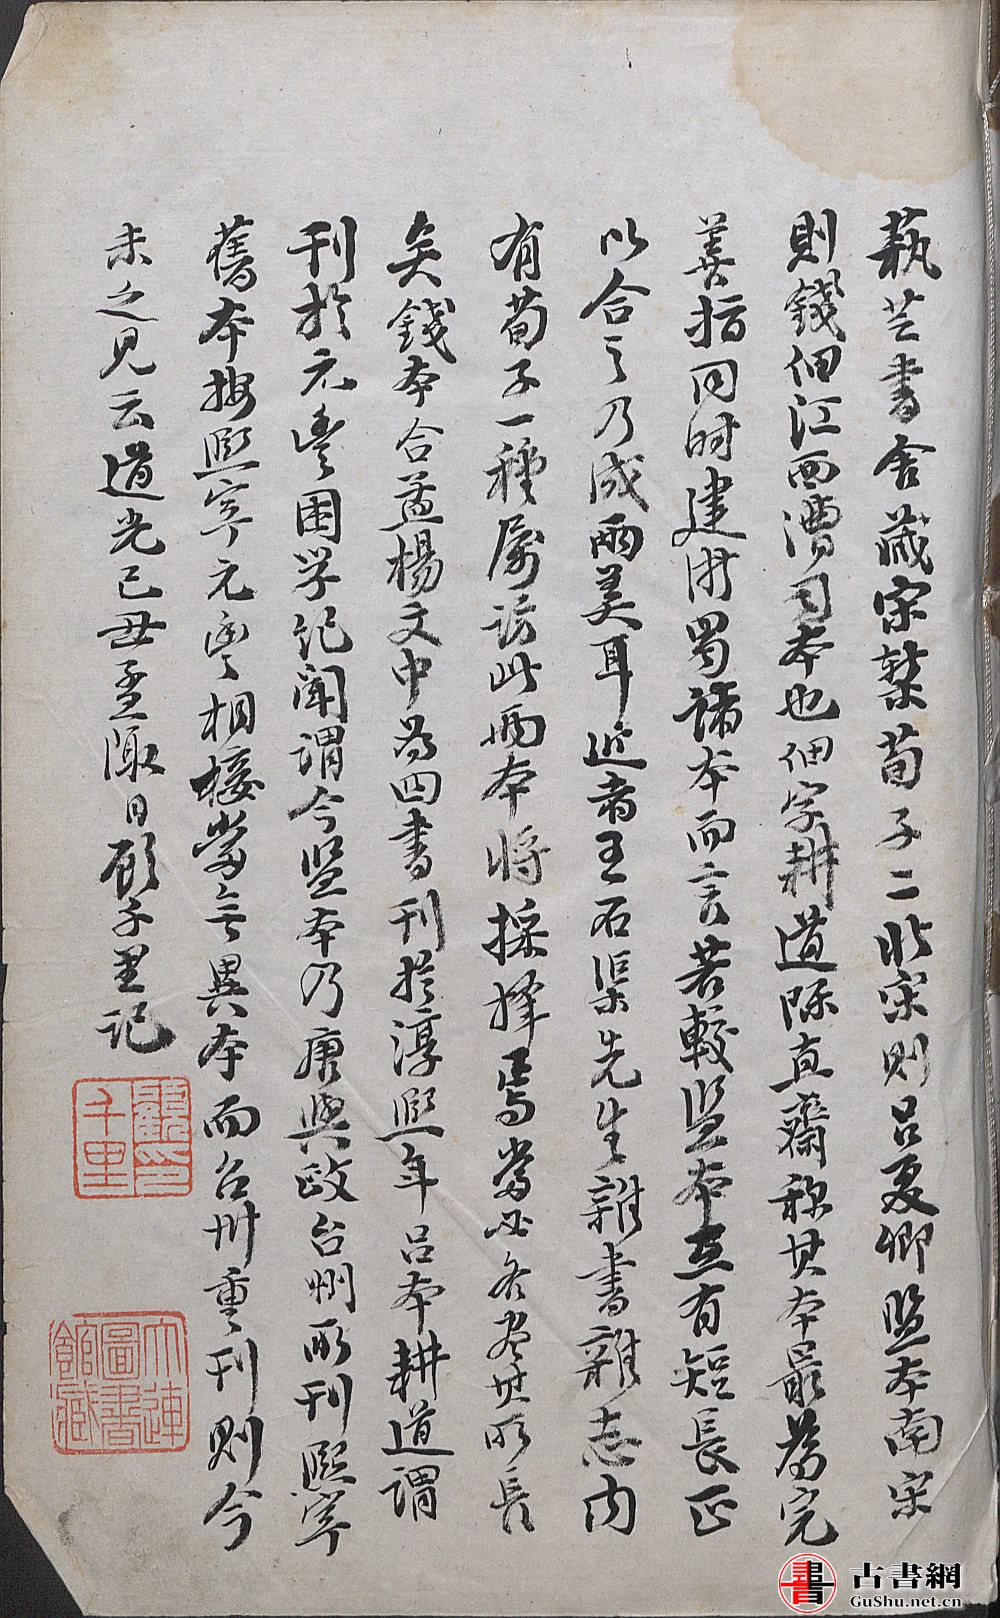 蓺芸書舍藏宋槧荀子二北宋則呂夏卿監本南宋
則錢佃江西漕司本也佃字耕道陳直齋称其本最為完
善指同時建浙蜀諸本而言若較監本互有短長正
以合之乃成兩美耳近者王石渠先生雜書雜志內
有荀子一種屬訪此兩本將採擇焉當必各尽其所長
矣錢本合孟楊文中為四書刊於淳熙年呂本耕道謂
刊於元豊困学紀聞謂今監本乃唐與政台州所刊熙寧
舊本按熙寧元豊相接當無異本而台州重刊則今
未之見云道光己丑孟陬月顧千里記
顧千里印
大連圖書館藏
古書網
GuShu.net.cn